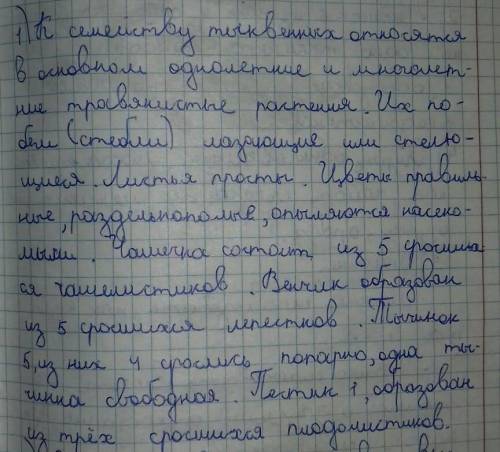 1) К семейству тыквенных относятся
в основном однолетние и многолет-
ние травянистые растения. Их по-
беги (стебли) лазающие или стелю-
щиеся. Листья просты. Цветы правиль-
ные, раздельнополые, опыляются насеко-
мыми. Чашечка состоит из 5 сросших
ся чашелистиков. Венчик образован
из 5 сросшихся лепестков. Тычинок
5, из них 4 срослись попарно, одна ты-
чинка свободная. Пестик 1, образован
из трёх сросшихся плодолистиков.